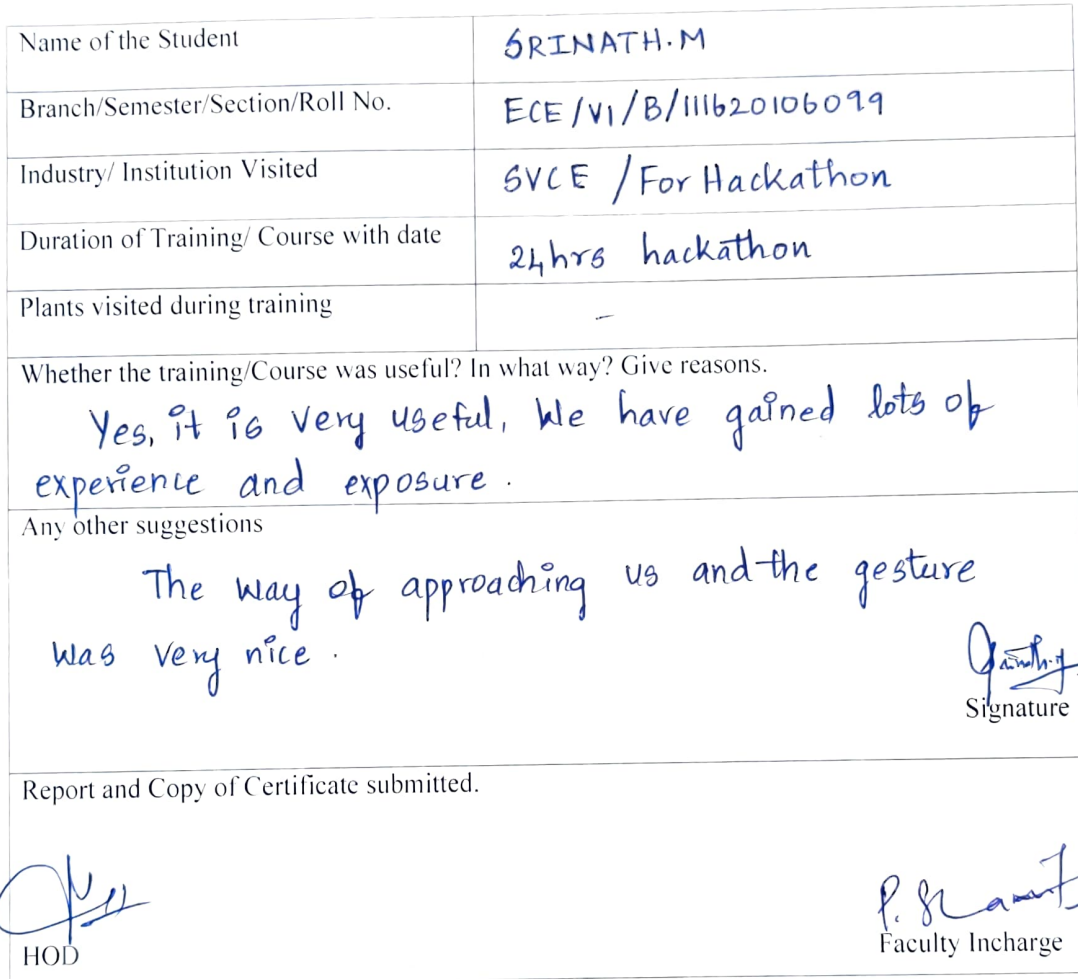 Name of the Student SRINATH.M
Branch/Semester/Section/Roll No. ECE/VI/B/111620106099
Industry/ Institution Visited SVCE / For Hackathon
Duration of Training/ Course with date 24hrs hackathon
Plants visited during training -
Whether the training/Course was useful? In what way? Give reasons.
Yes, it is very useful, We have gained lots of
experience and exposure.
Any other suggestions
The way of approaching us and the gesture
was very nice.
Signature
Report and Copy of Certificate submitted.
HOD
Faculty Incharge